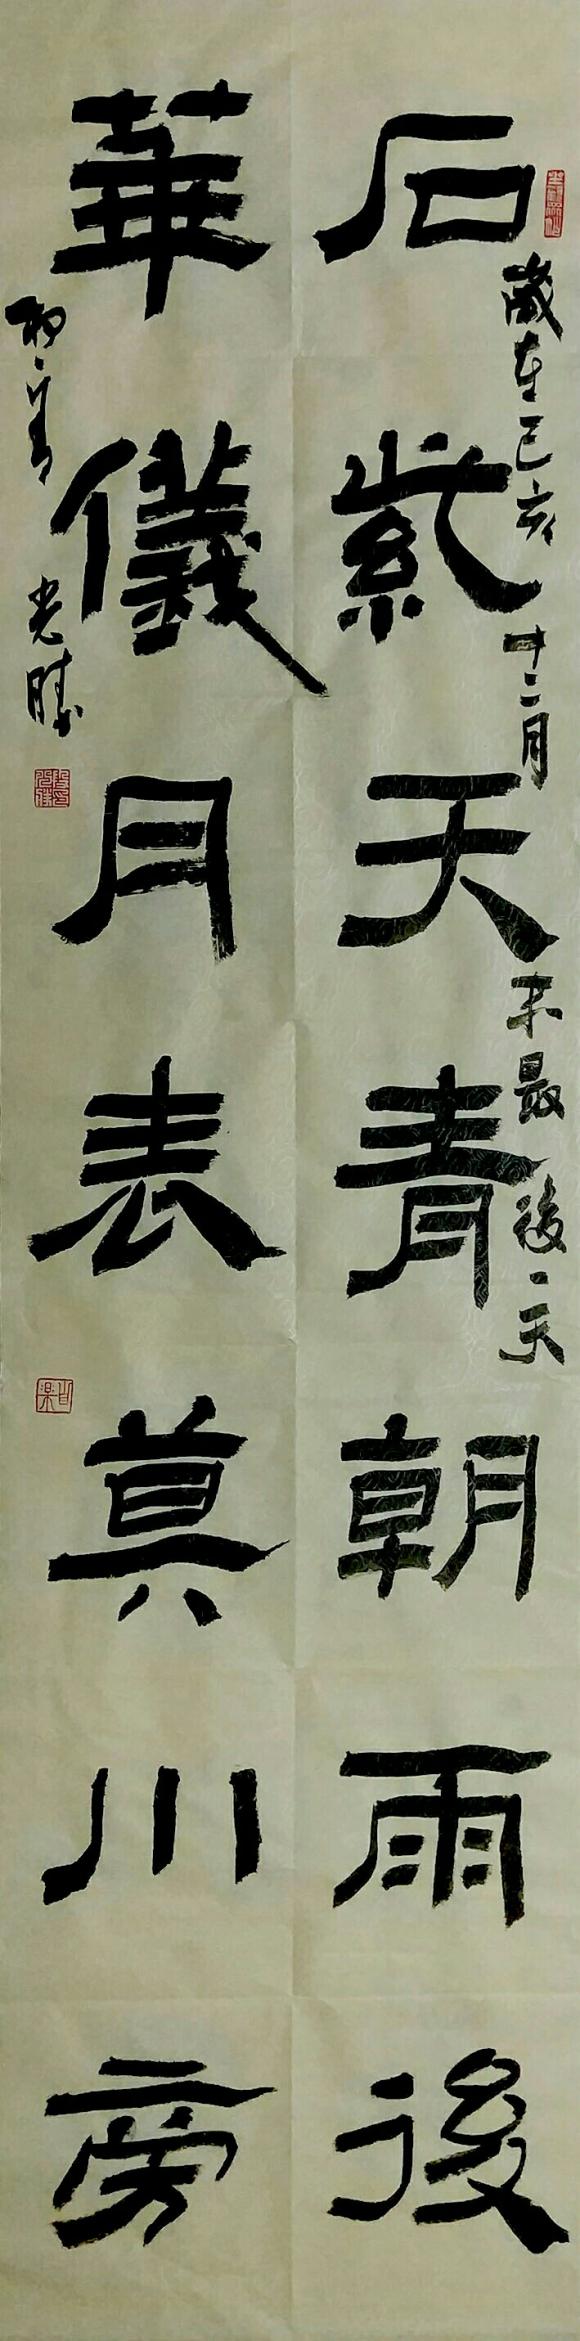 石紫天青朝雨後
華儀月表真川旁
歲在己亥十二月末最後一天
光勝